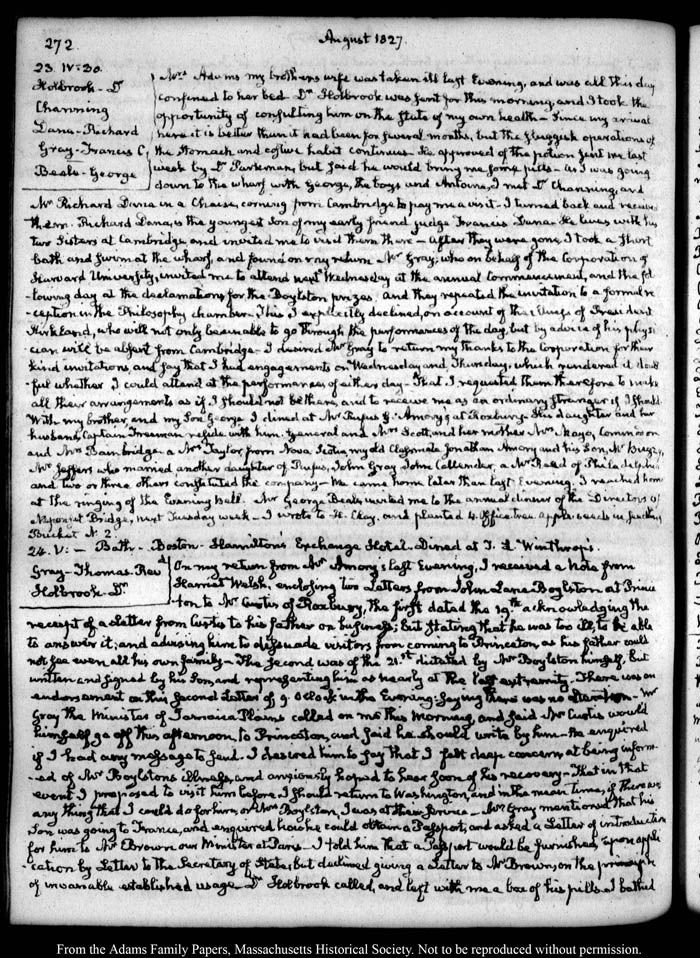 272
August 1827.
23. IV:30.
Holbrook - Dr
Channing
Dana - Richard
Gray - Francis C.
Beals - George
Mrs Adams my brothers wife was taken ill last Evening, and was all this day
confined to her bed. Dr Holbrook was sent for this morning, and I took the
opportunity of consulting him on the state of my own health - Since my arrival
here it is better than it had been for several months, but the sluggish operations of
the stomach and costive habit continues. He approved of the potion sent me last
week by Dr Parkman, but said he would bring me some pills - As I was going
down to the wharf with George, the boys and Antoine, I met Dr Channing, and
Mr Richard Dana in a Chaise, coming from Cambridge to pay me a visit - I turned back and received
them. Richard Dana, is the youngest Son of my early friend Judge Francis Dana. He lives with his
two Sisters at Cambridge and invited me to visit them there - After they were gone, I took a short
bath and swim at the wharf, and found on my return Mr Gray, who on behalf of the Corporation of
Harvard University, invited me to attend next Wednesday at the annual Commencement, and the fol
-lowing day at the declamations for the Boylston prizes. And they repeated the invitation to a formal re
-ception in the Philosophy chamber. This I explicitly declined, on account of the illness of President
Kirkland, who will not only be unable to go through the performances of the day, but by advice of his physi
-cian will be absent from Cambridge - I desired Mr Gray to return my thanks to the Corporation for their
kind invitations, and say that I had engagements on Wednesday and Thursday, which rendered it doubt
ful whether I could attend at the performances of either day - That I requested them therefore to make
all their arrangements as if I should not be there, and to receive me as an ordinary stranger if I should.
With my brother, and my Son George I dined at Mr Rufus G. Amory's at Roxbury. His daughter and her
husband, Captain Freeman reside with him. General and Mrs Scott, and her mother Mrs Mayo, Commodore
and Mrs Bainbridge. a Mr Taylor from Nova Scotia, my old Classmate Jonathan Amory and his Son, Mr
Mr Jeffers who married another daughter of Rufus, John Gray, John Callender, a Mr Read of Philadelphia
and two or three others constituted the company - We came home later than last Evening. I reached home
at the ringing of the Evening bell. Mr George Beals invited me to the annual dinner of the Directors of
Neponset Bridge, next Tuesday week - I wrote to H. Clay, and planted 4 apple seeds in
Bucket N. 2.
24. V: - Bath - Boston - Hamilton's Exchange Hotel. Dined at T. L. Winthrop's.
Gray - Thomas. Revd
Holbrook - Dr
On my return from Mr Amory's last Evening, I received a Note from
Harriet Welsh, enclosing two Letters from John Lane Boylston at Prince
ton to Mr Curtis of Roxbury, the first dated the 19th acknowledging the
receipt of a Letter from Curtis to his father on business; but stating that he was too ill to be able
to answer it; and advising him to dissuade visitors from coming to Princeton, as his father could
not see even all his own family - The second was of the 21st dictated by Mr Boylston himself, but
written and signed by his Son, and representing him as nearly at the last extremity. There was an
endorsement on this second Letter of 9. O'Clock in the Evening saying there was no alteration - Mr
Gray the Minister of Jamaica Plains called on me this Morning, and said Mr Curtis would
himself go off this afternoon, to Princeton, and said he should write by him - He enquired
if I had any message to send. I desired him to say that I felt deep concern, at being inform
-ed of Mr Boylston's illness, and anxiously hoped to hear soon of his recovery - That in that
event I proposed to visit him before I should return to Washington, and in the mean time, if there was
any thing that I could do for him, or Mrs Boylston, I was at their service - Mr Gray mentioned that his
Son was going to France, and enquired how he could obtain a Passport, and asked a Letter of introduction
for him to Mr Brown our Minister at Paris - I told him that a Passport would be furnished, upon appli
-cation by Letter to the Secretary of State; but declined giving a Letter to Mr Brown, on the principle
of invariable established usage. Dr Holbrook called, and left with me a box of his pills. I bathed
From the Adams Family Papers, Massachusetts Historical Society. Not to be reproduced without permission.